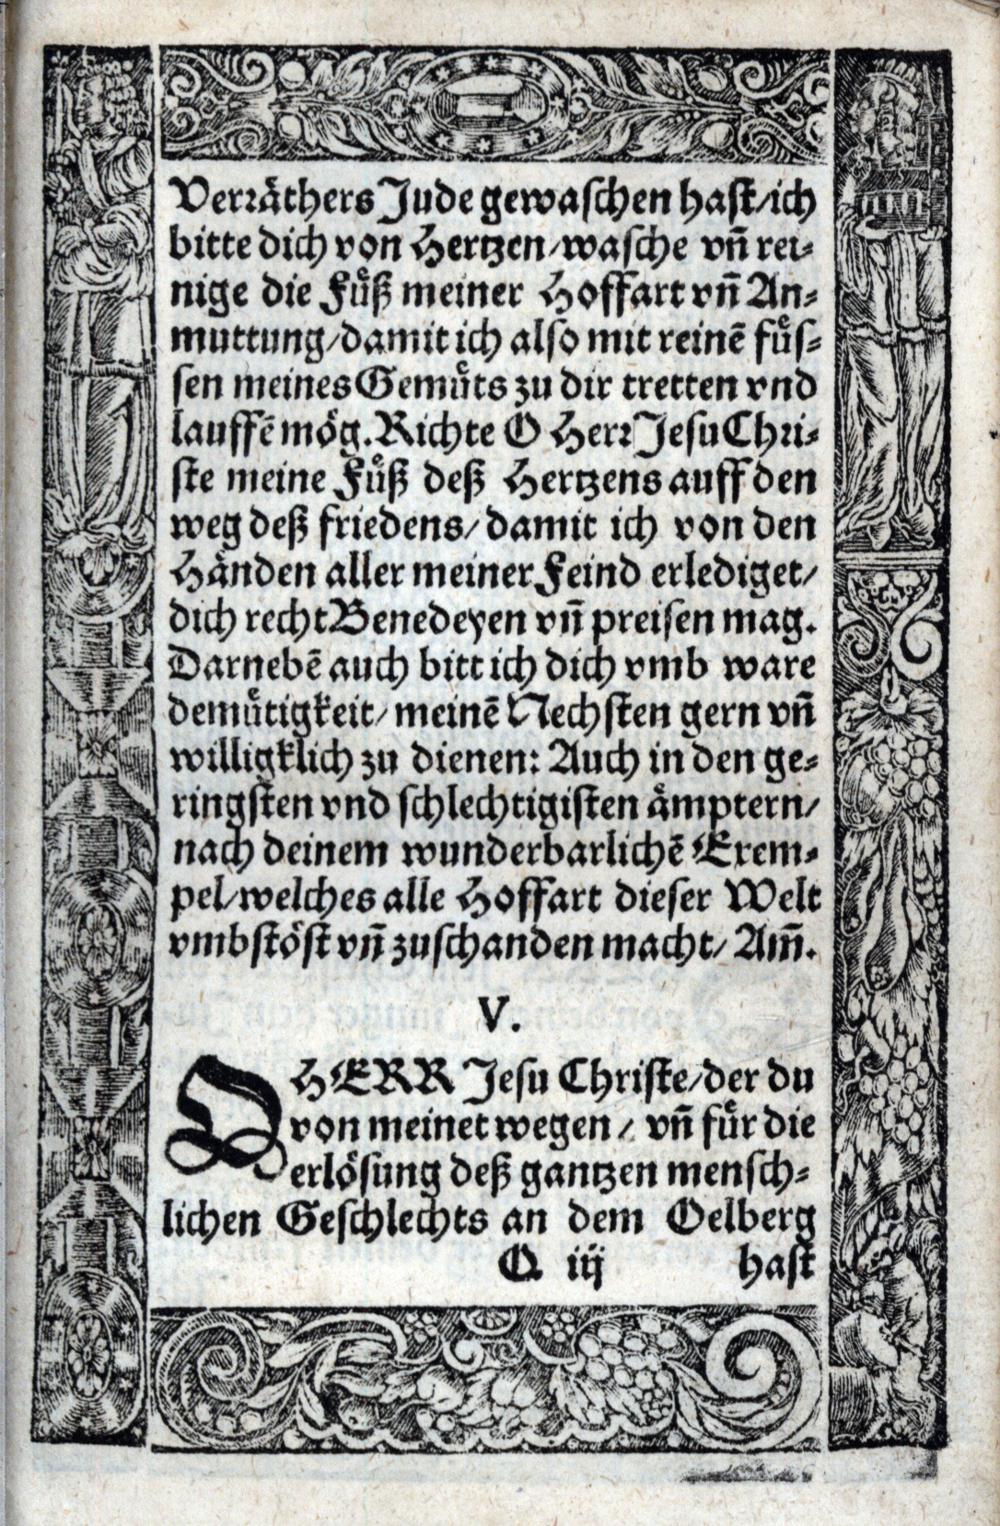 Verräthers Jude gewaschen hast/ich
bitte dich von Hertzen/wasche vn̄ rei⸗
nige die Fuͤß meiner Hoffart vn̄ An⸗
muttung/damit ich also mit reinē fuͤs⸗
sen meines Gemuͤts zu dir tretten vnd
lauffē moͤg. Richte O Herr Jesu Chri⸗
ste meine Fuͤß deß Hertzens auff den
weg deß friedens/ damit ich von den
Haͤnden aller meiner Feind erlediget/
dich recht Benedeyen vn̄ preisen mag.
Darnebē auch bitt ich dich vmb ware
demuͤtigkeit/ meinē Nechsten gern vn̄
willigklich zu dienen: Auch in den ge⸗
ringsten vnd schlechtigisten aͤmptern/
nach deinem wunderbarlichē Exem⸗
pel/welches alle Hoffart dieser Welt
vmbstoͤst vn̄ zuschanden macht/ Am̄.
V.
O HERR Jesu Christe/der du
von meinet wegen/ vn̄ fuͤr die
erloͤsung deß gantzen mensch⸗
lichen Geschlechts an dem Oelberg
Q iij hast